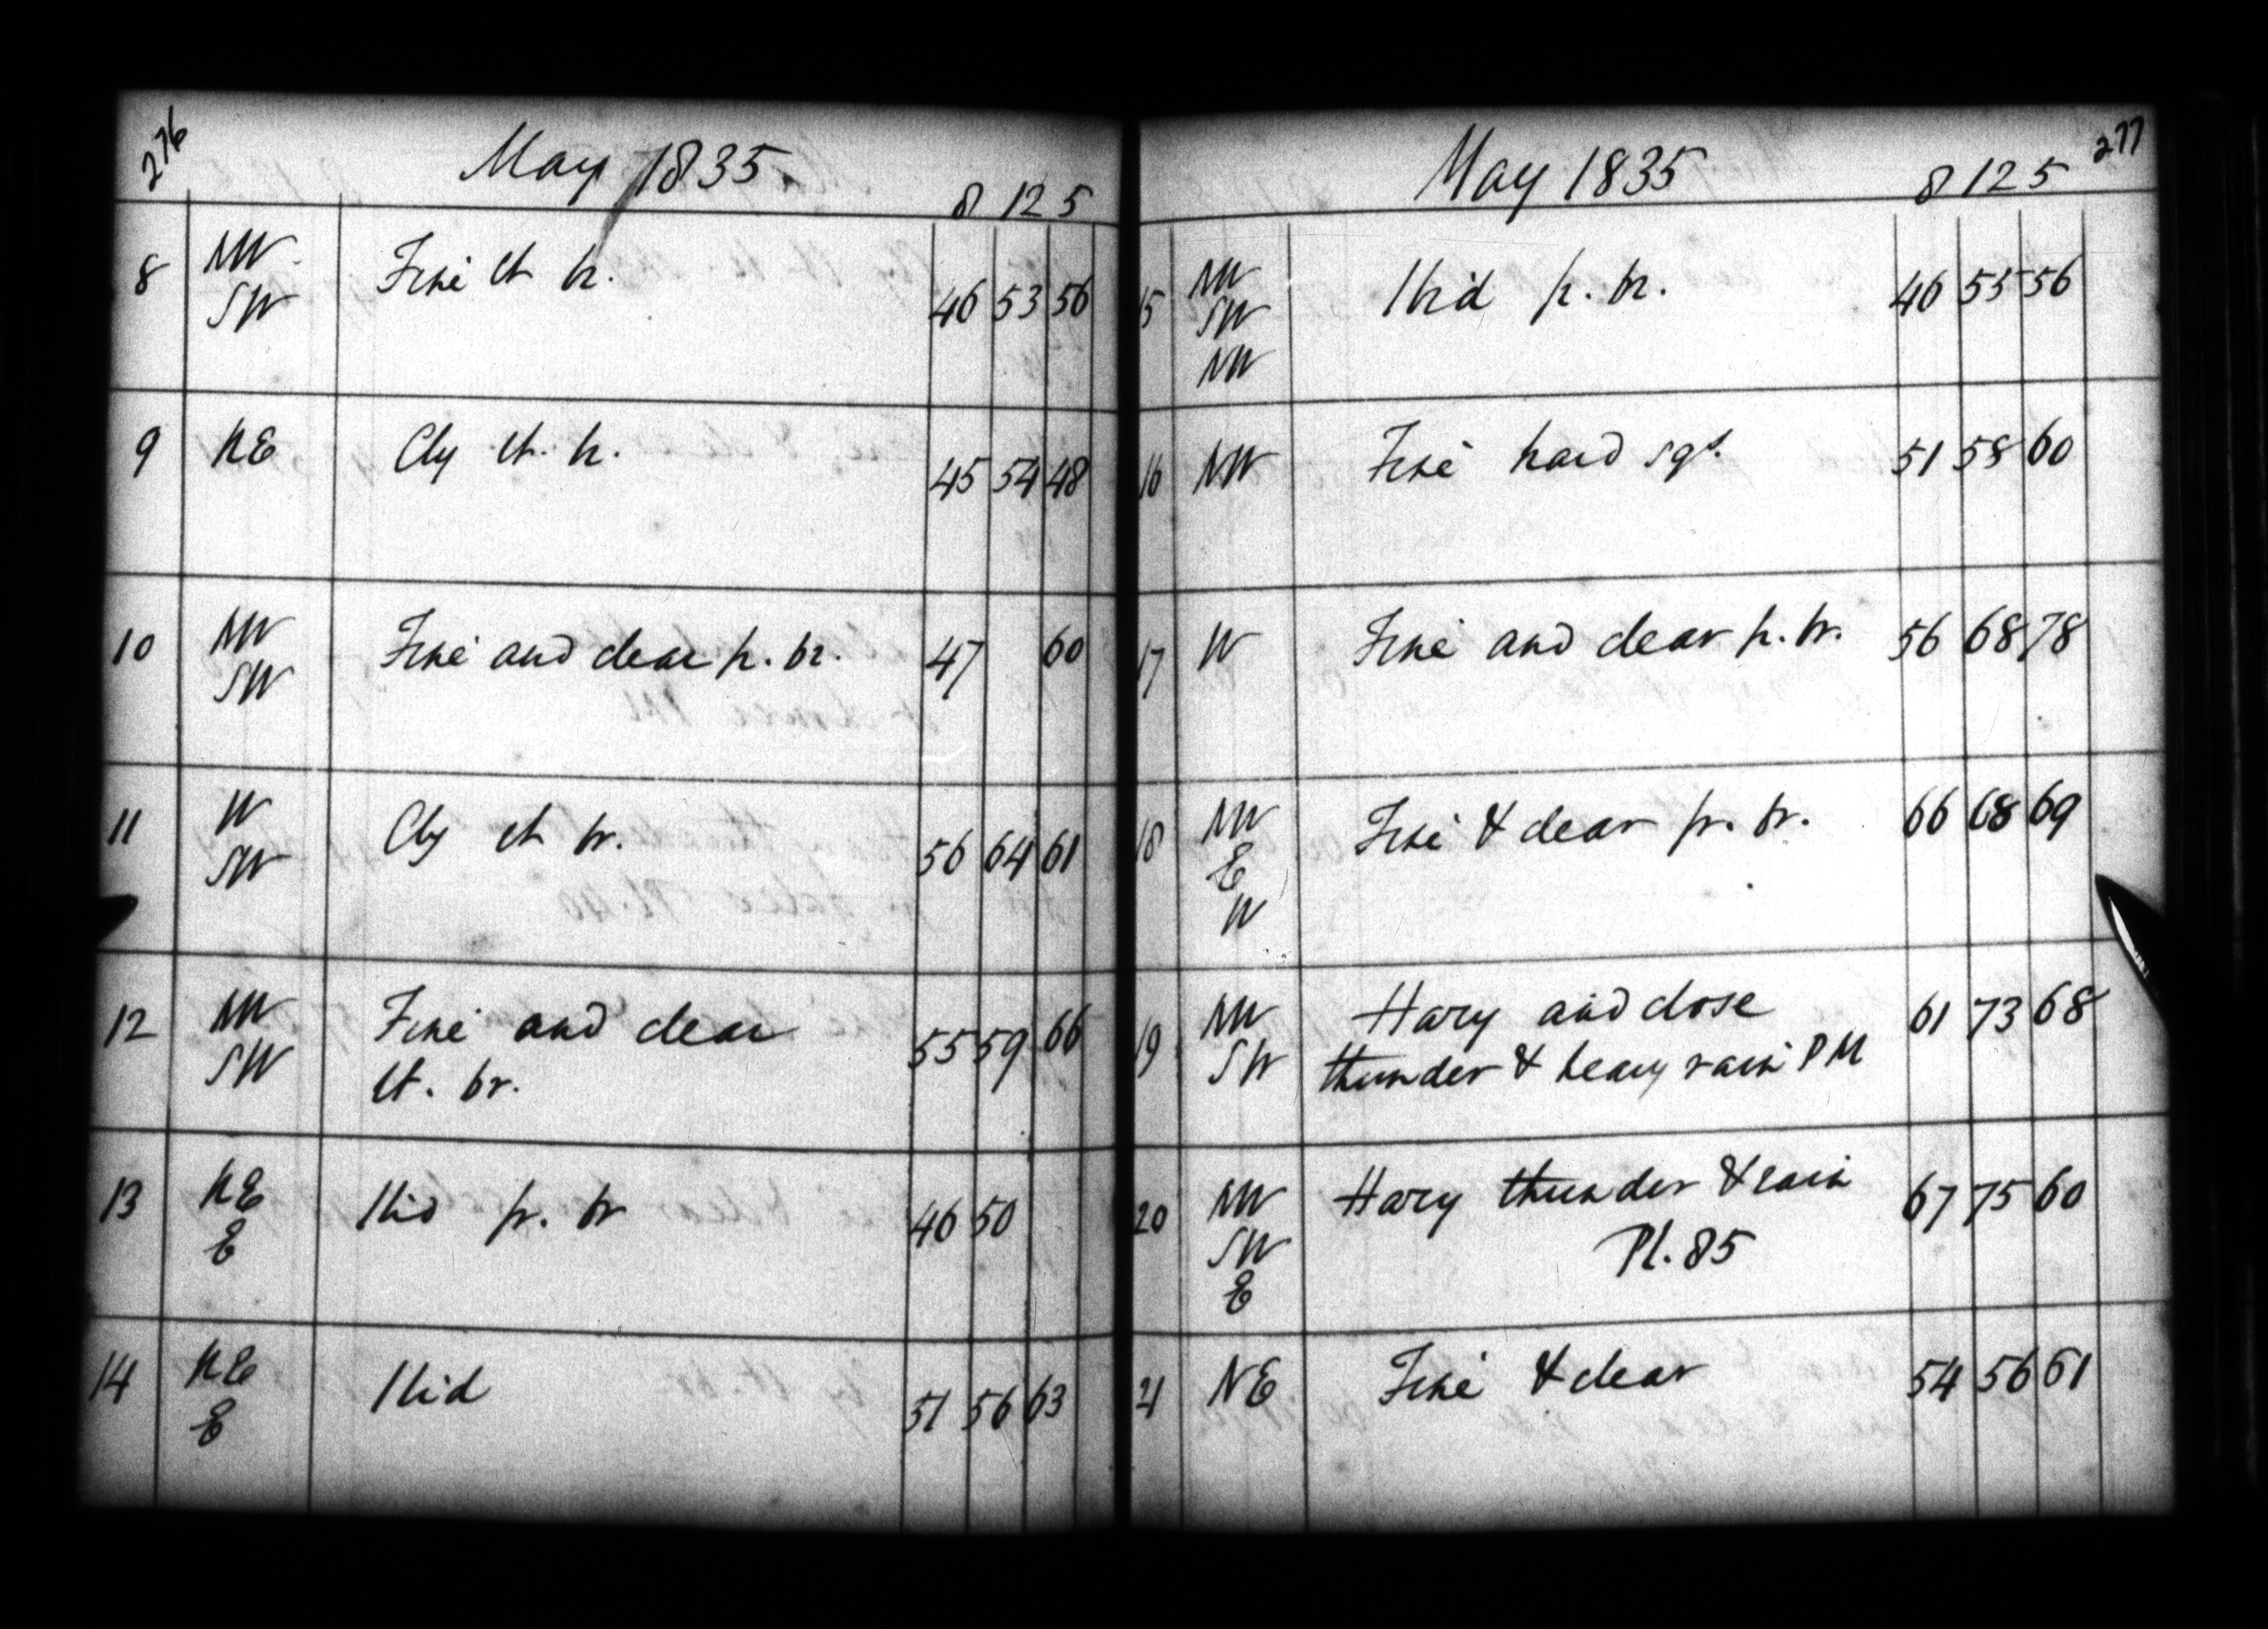 276
May 1835.
8 12 5
8 NW SW Fine lt br. 46 53 56
9 NE Cly lt. br. 45 54 48
10 NW SW Fine and clear p. br. 47 60
11 W SW Cly lt br. 56 64 61
12 NW SW Fine and clear 55 59 66
lt. br.
13 NE E Ibid p. br 46 50
14 NE E Ibid 51 56 63
277
May 1835
8 12 5
15 NW SW NW Ibid p. br. 46 55 56
16 NW Fine hard sqs. 51 58 60
17 W Fine and clear p. br. 56 68 78
18 NW E W Fine & clear p. br. 66 68 69
19 NW SW Hazy and close 61 73 68
thunder & heavy rain PM
20 NW SW E Hazy thunder & rain 67 75 60
Pl. 85
21 NE Fine & clear 54 56 61